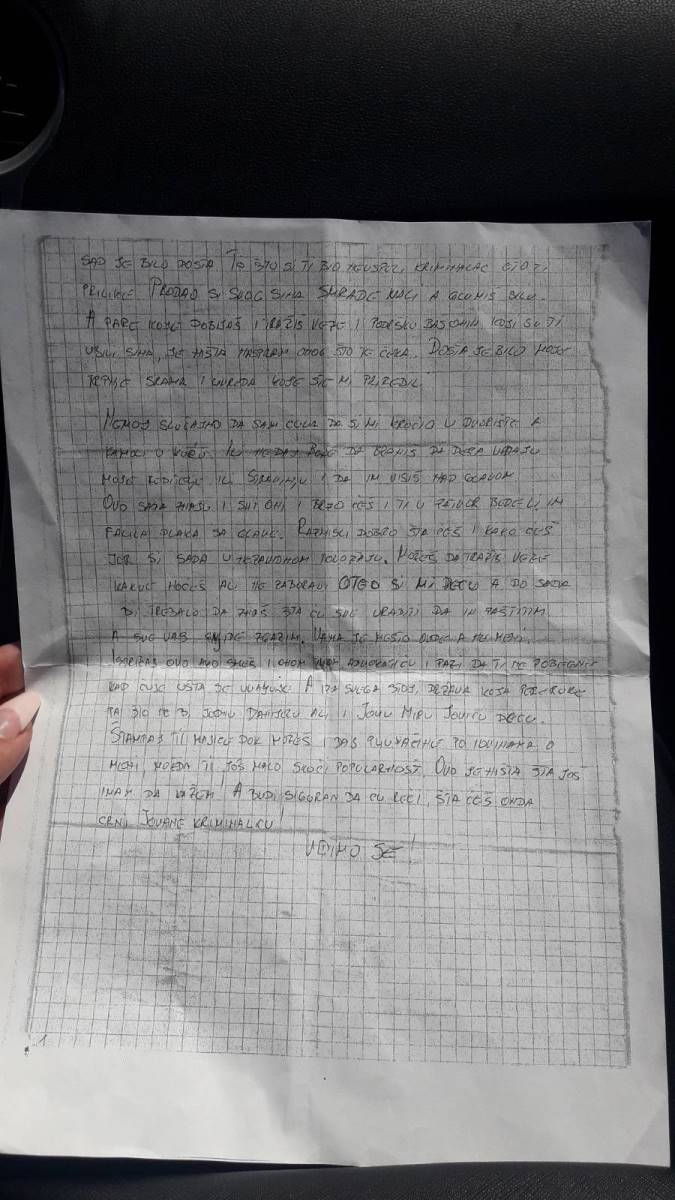 SAD JE BILO DOSTA. TO ŠTO SI TI BIO NEUSPELI KRIMINALAC
PRILIKE PRODAO SI SVOG SINA A GLUMIŠ SILU.
A PARE KOJE DOBIJAŠ I TRAŽIŠ VEZE I PODRŠKU BAŠ ONIH KOJI SU TI
UBILI SINA, JE NIŠTA NASPRAM OVOG ŠTO TE ČEKA. DOSTA JE BILO MOJE
SRAMA I UVREDA KOJE STE MI PRIREDILI.
NEMOJ SLUČAJNO DA SAM ČULA DA SI MI KROČIO U DVORIŠTE A
KAMOLI U KUĆU. ILI NE DAJ BOŽE DA BRANIŠ DA DECA VIĐAJU
MOJU RODBINU ILI I DA IM VISIŠ NAD GLAVOM
OVO SADA ZNAJU I SVI ONI I BRZO ĆEŠ I TI U ZATVOR BUDE LI IM
FALILA DLAKA SA GLAVE. RAZMISLI DOBRO ŠTA ĆEŠ I KAKO ĆEŠ
JER SI SADA U NEZAVIDNOM POLOŽAJU. MOŽEŠ DA TRAŽIŠ VEZE
KAKVE HOĆEŠ ALI NE ZABORAVI OTEO SI MI DECU A DO SADA
BI TREBALO DA ZNAŠ ŠTA ĆU SVE URADITI DA IH ZAŠTITIM
A SVE VAS DA ZGAZIM. VAMA JE MESTO OVDE A NE MENI.
OVO AKO SMEŠ I ONOM TVOM ADVOKATIĆU I PAZI DA TI NE POBEGNE
KAD ČUJE U ŠTA SE UVALJUJE. A IZA SVEGA STOJI, DRŽAVA KOJA
DANIJELU ALI I JOVU MIRU JOVIĆU DECU.
ŠTAMPAŠ TI MAJICE DOK MOŽEŠ I DAJ PO NOVINAMA O
MENI, MOŽDA TI JOŠ MALO SKOČI POPULARNOST. OVO JE NIŠTA ŠTA JOŠ
IMAM DA KAŽEM. A BUDI SIGURAN DA ĆU REĆI, ŠTA ĆEŠ ONDA
CRNI JOVANE KRIMINALCU!
VIDIMO SE!